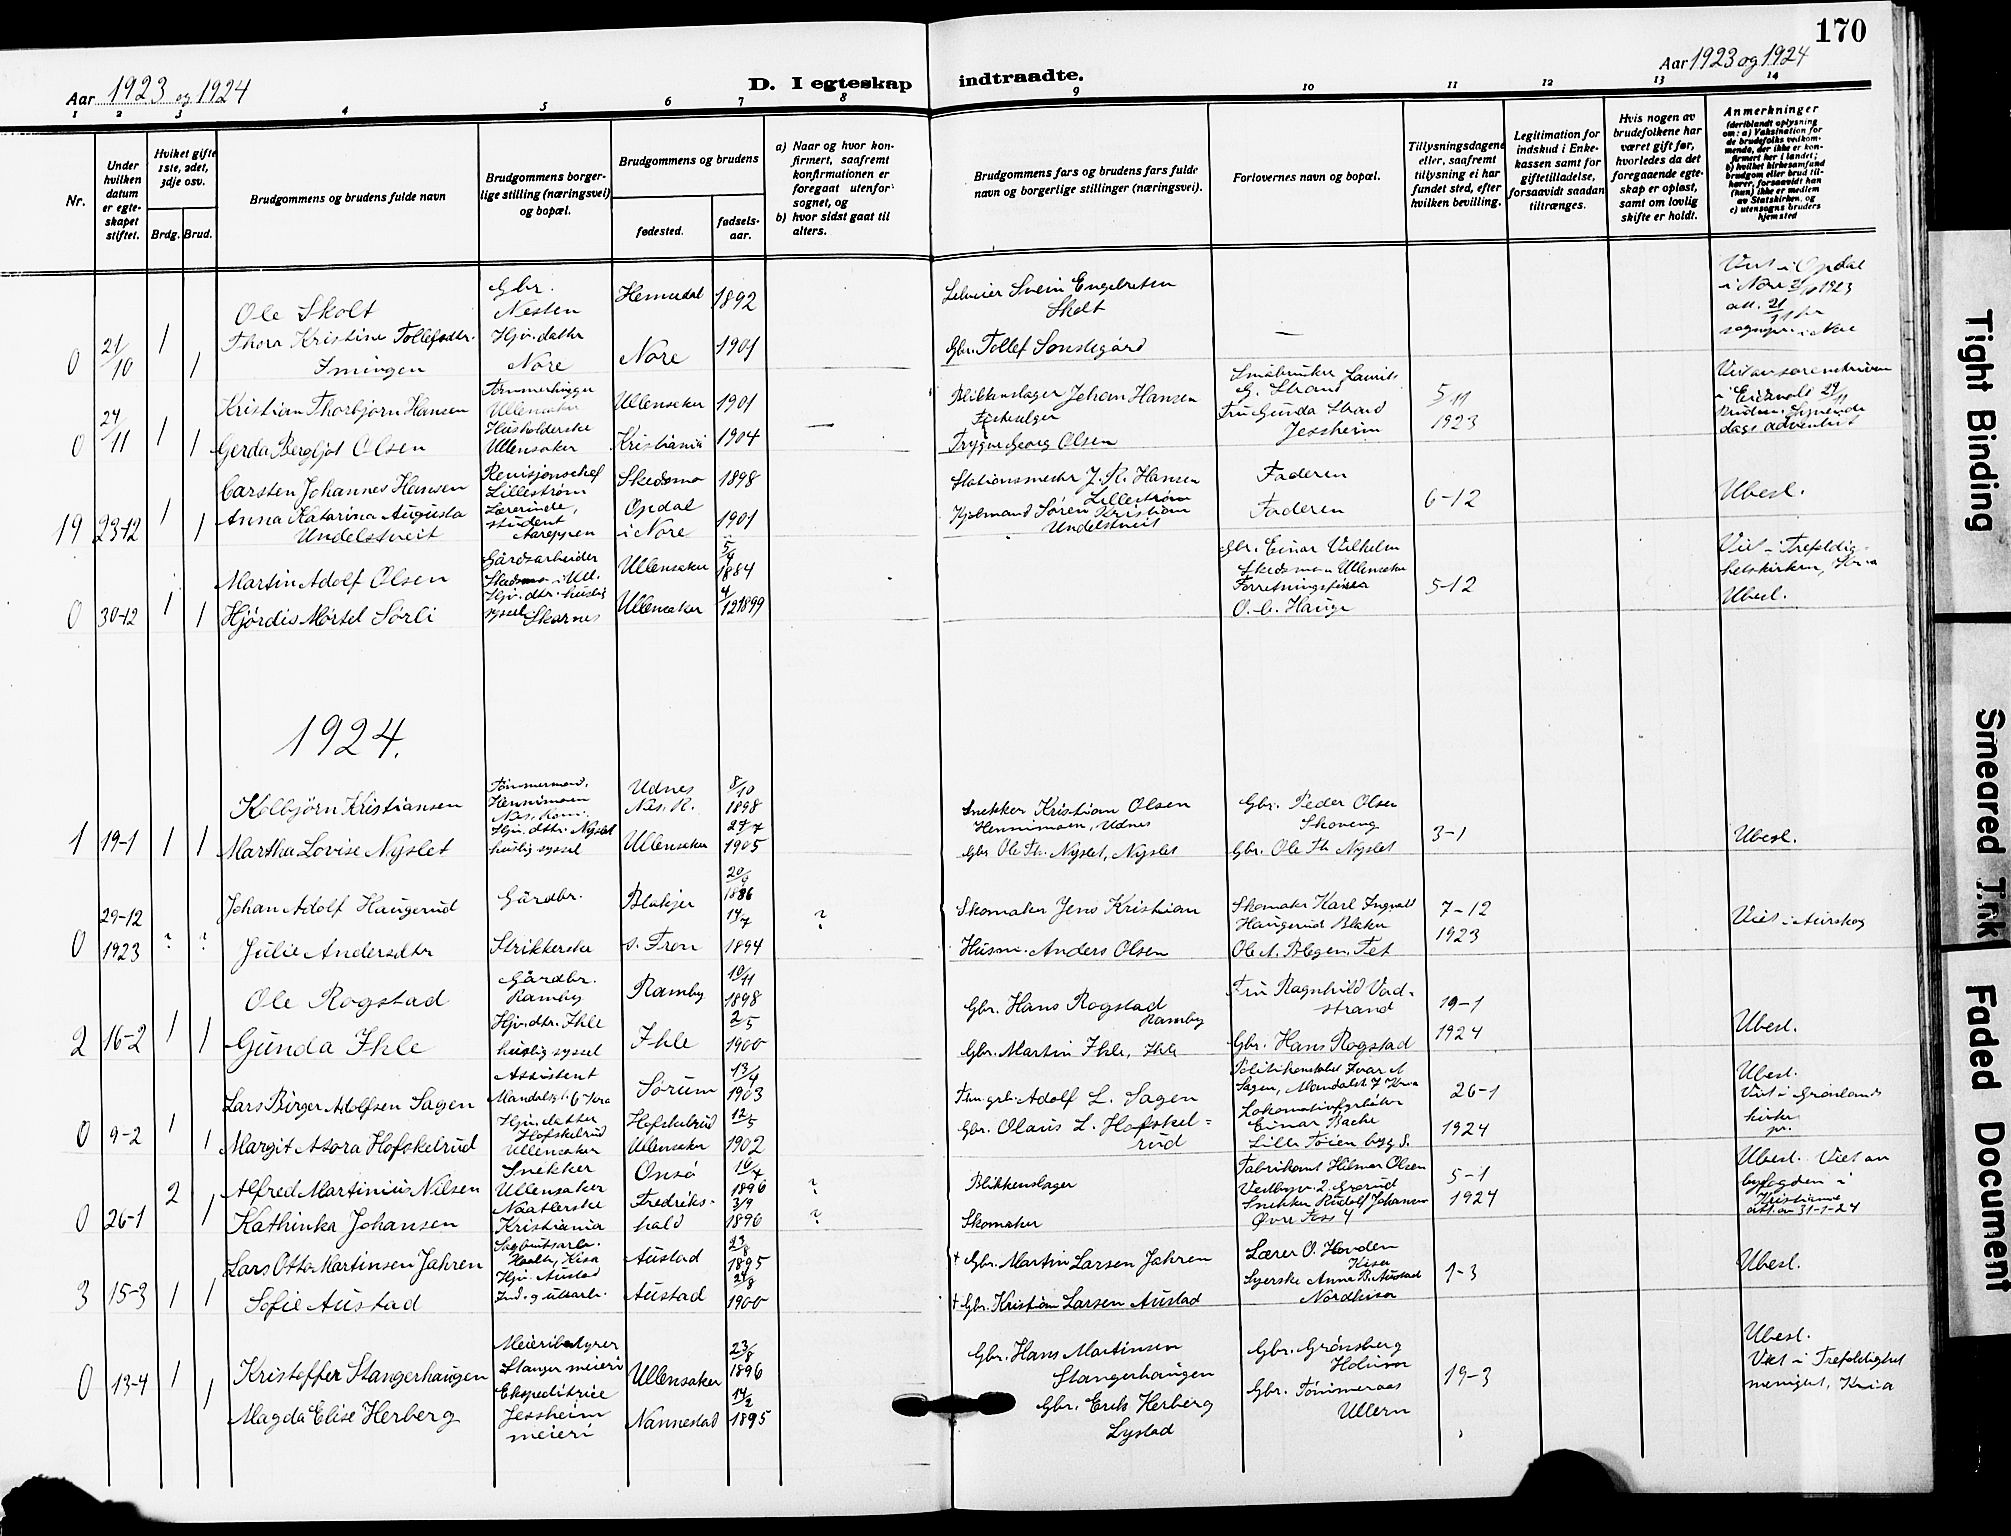 170
Aar 1923 og 1924
D. I egteskap indtraadte.
Aar 1923 og 1924
1 2 3 4 5 6 7 8 9 10 11 12 13 14
Nr.
Under hvilken datum er egteskapet stiftet.
Hviket gifte 1ste, 2det, 3dje osv.
Brdg. Brud.
Brudgommens og brudens fulde navn
Brudgommens borgerlige stilling (næringsvei) og bopæl.
Brudgommens og brudens
fødested.
fødselsaar.
a) Naar og hvor konfirmert, saafremt konfirmationen er foregaat utenfor sognet, og
b) hvor sidst gaat til alters.
Brudgommens fars og brudens fars fulde navn og borgerlige stillinger (næringsvei).
Forlovernes navn og bopæl.
Tillysningsdagene eller, saafremt tillysning ei har fundet sted, efter hvilken bevilling.
Legitimation for indskud i Enkekassen samt for giftetilladelse, forsaavidt saadan tiltrænges.
Hvis nogen av brudefolkene har været gift før, hvorledes da det foregaaende egteskap er opløst, samt om lovlig skifte er holdt.
Anmerkninger (deriblandt oplysning om: a) Vaksination for de brudefolks vedkommende, der ikke er konfirmert her i landet; b) hvilket kirkesamfund brudgom eller brud tilhører, forsaavidt han (hun) ikke er medlem av Statskirken, og c) utensogns bruders hjemsted
Ole Skolt
Gbr. Nesten
Hemsedal 1892
Svein Engebretsen Skolt
0 21/10 1 1
Thora Kristine Tollefsdtr. Imingen
Hjv. datter Nore
Nore 1901
Gbr. Tollef Sønstegård
—
Viet i Opdal i Nore 21/10 1923
Kristian Thorbjørn Hansen
Tømmerhugger Ullensaker
Ullensaker 1901
—
Blikkenslager Johan Hansen
Småbruker Laurits G. Strand
5/11 1923
0 24/11 1 1
Gerda Bergljot Olsen
Husholderske Ullensaker
Kristiania 1904
Trygve Georg Olsen
Fru Gunda Strand Jessheim
Carsten Johannes Hansen
Revisjonschef Lillestrøm
Skedsmo 1898
Stationsmester J. K. Hansen Lillestrøm
Faderen
6-12
Ubesl.
19 23-12 1 1
Anna Katarina Augusta Undelstveit
Lærerinde, student
Opdal i Nore 1901
Søren Kristian Undelstveit
Faderen
Martin Adolf Olsen
Gårdsarbeider Skedsmo i Ull.
Ullensaker 5/4 1884
Gbr. Einar Vilhelm Skedsmo Ullensaker
5-12
Viet i Trefoldighetskirken, Kr.a
0 30-12 1 1
Hjørdis Mørtel Sørli
Hjv. dtr. huslig syssel Skarnes
Ullensaker 4/12 1899
O. C. Hauge
Ubesl.
1924.
Kolbjørn Kristiansen
Tømmermand. Hennimoen Nes. Rom.
Udnes Nes. R. 8/10 1898
Snekker Kristian Olsen Hennimoen, Udnes
Gbr. Peder Olsen Skoveng
3-1
Ubesl.
1 19-1 1 1
Martha Lovise Nyslet
Hjv. dtr. Nyslet huslig syssel
Ullensaker 24/7 1905
Gbr Ole Th. Nyslet, Nyslet
Gbr. Ole Th Nyslet
Johan Adolf Haugerud
Gårdbr.
Blakjer 1886
?
Skomaker Jens Kristian
Skomaker Karl Ingvald Haugerud Blaker
7-12 1923
Viet i Aurskog
0 29-12 1923 ? ?
Julie Andersdtr
Strikkerske
s. Fron 14/7 1894
Husm. Anders Olsen
Ole A. Blegen. Fet
Ole Rogstad
Gårdbr. Ramby
Ramby 10/11 1898
Gbr. Hans Rogstad Ramby
Fru Ragnhild Vadstrand
19-1 1924
Ubesl.
2 16-2 1 1
Gunda Ihle
Hjv. dtr. Ihle huslig syssel
Ihle 2/5 1900
Gbr. Martin Ihle, Ihle
Gbr. Hans Rogstad
Lars Birger Adolfsen Sagen
Assistent Mandalsgt. 6 Kra
Sørum 13/4 1903
Adolf L. Sagen
Politikonstabel Ivar A Sagen, Mandalsgt 7 Kr.a
26-1 1924
Ubesl. Viet i Grønlands kirke
0 9-2 1 1
Margit Asora Hofskelrud
Hjv. datter Hofskelrud Ullensaker
Hofskelrud Ullensaker 12/5 1902
Gbr. Olaus L. Hofskelrud
Lokomotivfyrbøter Einar Bache Lille Tøien byg 8.
Alfred Martinius Nilsen
Snekker Ullensaker
Onsø 16/4 1896
?
Blikkenslager
Fabrikant Hilmar Olsen Vedbyv. 2. Grorud
5-1 1924
Ubesl. Viet av byfogden i Kristiania att. av 31-1-24
0 26-1 2 1
Kathinka Johansen
Naatlerske Kristiania
Fredrikshald 3/9 1896
?
Skomaker
Snekker Rudolf Johansen Øvre Foss 4
Lars Otto Martinsen Jahren
Sagbruksarb. Kisa
Austad 23/8 1895
† Gbr. Martin Larsen Jahren
Lærer O. Hovden Kisa
1-3
Ubesl.
3 15-3 1 1
Sofie Austad
Hjv. Austad
Austad 24/8 1900
† Gbr. Kristian Larsen Austad
Syerske Anna B. Austad Nordkisa
Kristoffer Stangerhaugen
Meieribestyrer Stanger meieri
Ullensaker 23/8 1896
Gbr. Hans Martinsen Stangerhaugen
Gbr. Grønsberg Holum
19-3
Ubesl. Viet i Trefoldighet menighet, Kr.a
0 13-4 1 1
Magda Elise Herberg
Ekspeditrice Jessheim meieri
Nannestad 14/2 1895
Gbr. Erik Herberg Lystad
Gbr. Tømmeraas Ullern
Tight Binding
Smeared Ink
Faded Document